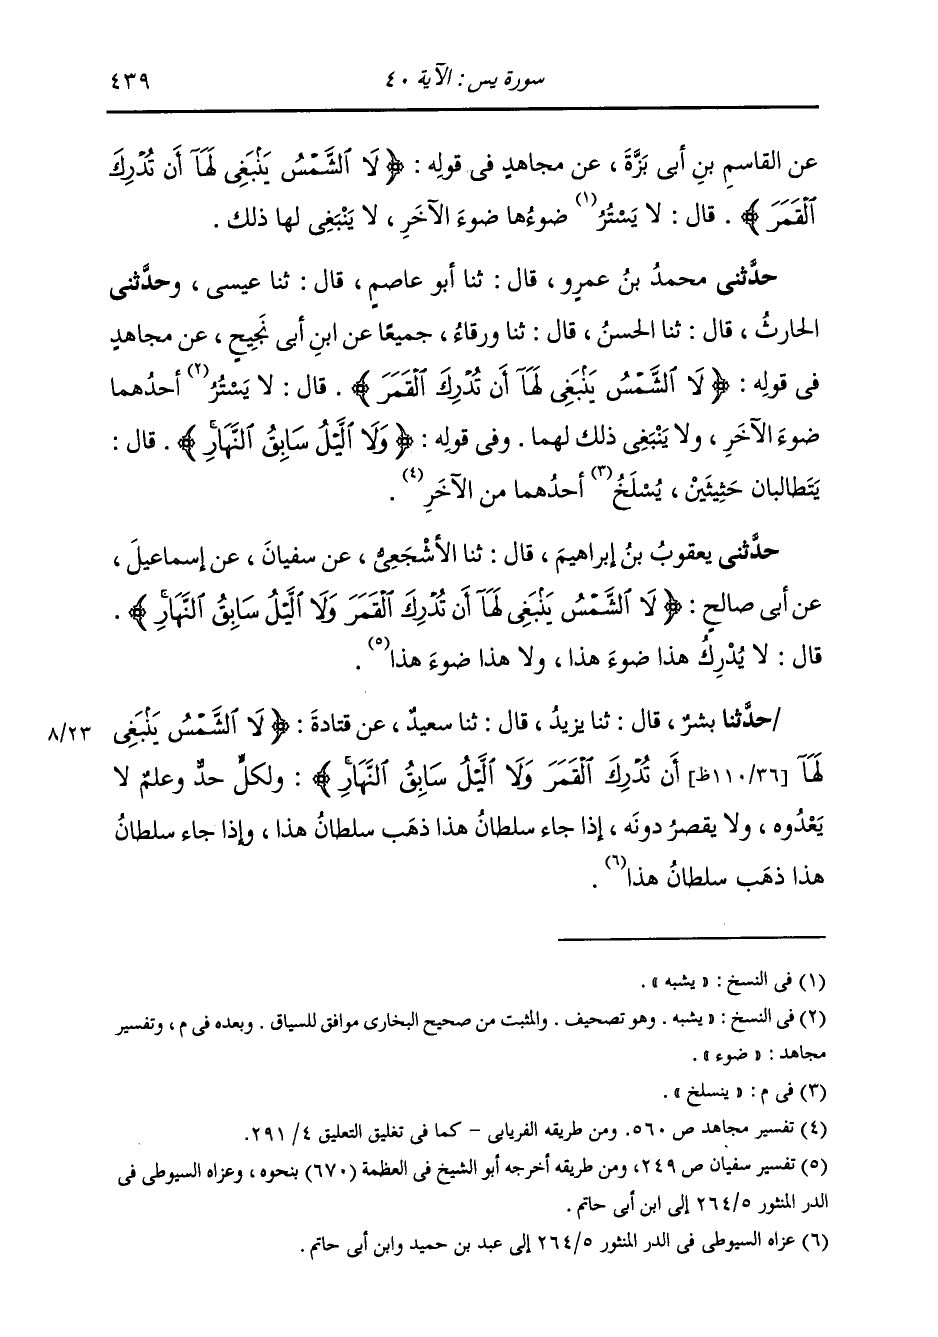 سورة يس : الآية ٤٠
٤٣٩
عن القاسمِ بنِ أبى بَزَّةَ ، عن مجاهدٍ فى قولِه : ﴿ لَا ٱلشَّمْسُ يَنۢبَغِى لَهَآ أَن تُدْرِكَ
ٱلْقَمَرَ ﴾ . قال : لا يَسْتُرُ(١) ضوءُها ضوءَ الآخَرِ ، لا يَنْبَغِى لها ذلك .
حدَّثنى محمدُ بنُ عمرٍو ، قال : ثنا أبو عاصمٍ ، قال : ثنا عيسى ، وحدَّثنى
الحارثُ ، قال : ثنا الحسنُ ، قال : ثنا ورقاءُ ، جميعًا عن ابنِ أبى نَجِيحٍ ، عن مجاهدٍ
فى قولِه : ﴿ لَا ٱلشَّمْسُ يَنۢبَغِى لَهَآ أَن تُدْرِكَ ٱلْقَمَرَ ﴾ . قال : لا يَسْتُرُ(٢) أحدُهما
ضوءَ الآخَرِ ، ولا يَنْبَغِى ذلك لهما . وفى قولِه : ﴿ وَلَا ٱلَّيْلُ سَابِقُ ٱلنَّهَارِۚ ﴾ . قال :
يَتَطالبان حَثِيثَيْن ، يُسْلَخُ(٣) أحدُهما من الآخَرِ(٤) .
حدَّثنى يعقوبُ بنُ إبراهيمَ ، قال : ثنا الأَشْجَعِىُّ ، عن سفيانَ ، عن إسماعيلَ ،
عن أبى صالحٍ : ﴿ لَا ٱلشَّمْسُ يَنۢبَغِى لَهَآ أَن تُدْرِكَ ٱلْقَمَرَ وَلَا ٱلَّيْلُ سَابِقُ ٱلنَّهَارِۚ ﴾ .
قال : لا يُدْرِكُ هذا ضوءَ هذا ، ولا هذا ضوءَ هذا(٥) .
/حدَّثنا بشرٌ ، قال : ثنا يزيدُ ، قال : ثنا سعيدٌ ، عن قتادةَ : ﴿ لَا ٱلشَّمْسُ يَنۢبَغِى
٨/٢٣
لَهَآ [١١٠/٣٦ظ] أَن تُدْرِكَ ٱلْقَمَرَ وَلَا ٱلَّيْلُ سَابِقُ ٱلنَّهَارِۚ ﴾ : ولكلٍّ حدٌّ وعلمٌ لا
يَعْدُوه ، ولا يقصرُ دونَه ، إذا جاء سلطانُ هذا ذهَب سلطانُ هذا ، وإذا جاء سلطانُ
هذا ذهَب سلطانُ هذا(٦) .
(١) فى النسخ : « يشبه » .
(٢) فى النسخ : « يشبه . وهو تصحيف . والمثبت من صحيح البخارى موافق للسياق . وبعده فى م ، وتفسير
مجاهد : « ضوء » .
(٣) فى م : « ينسلخ » .
(٤) تفسير مجاهد ص ٥٦٠. ومن طريقه الفريابى – كما فى تغليق التعليق ٤/ ٢٩١.
(٥) تفسير سفيان ص ٢٤٩، ومن طريقه أخرجه أبو الشيخ فى العظمة (٦٧٠) بنحوه ، وعزاه السيوطى فى
الدر المنثور ٢٦٤/٥ إلى ابن أبى حاتم .
(٦) عزاه السيوطى فى الدر المنثور ٢٦٤/٥ إلى عبد بن حميد وابن أبى حاتم .